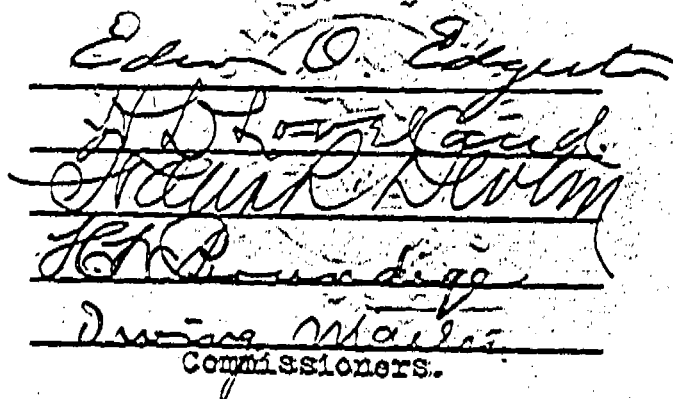 Edwin O. Edgerton
H D Loveland.
Frank R Devlin
H. D. 
Irving Martin
Commissioners.